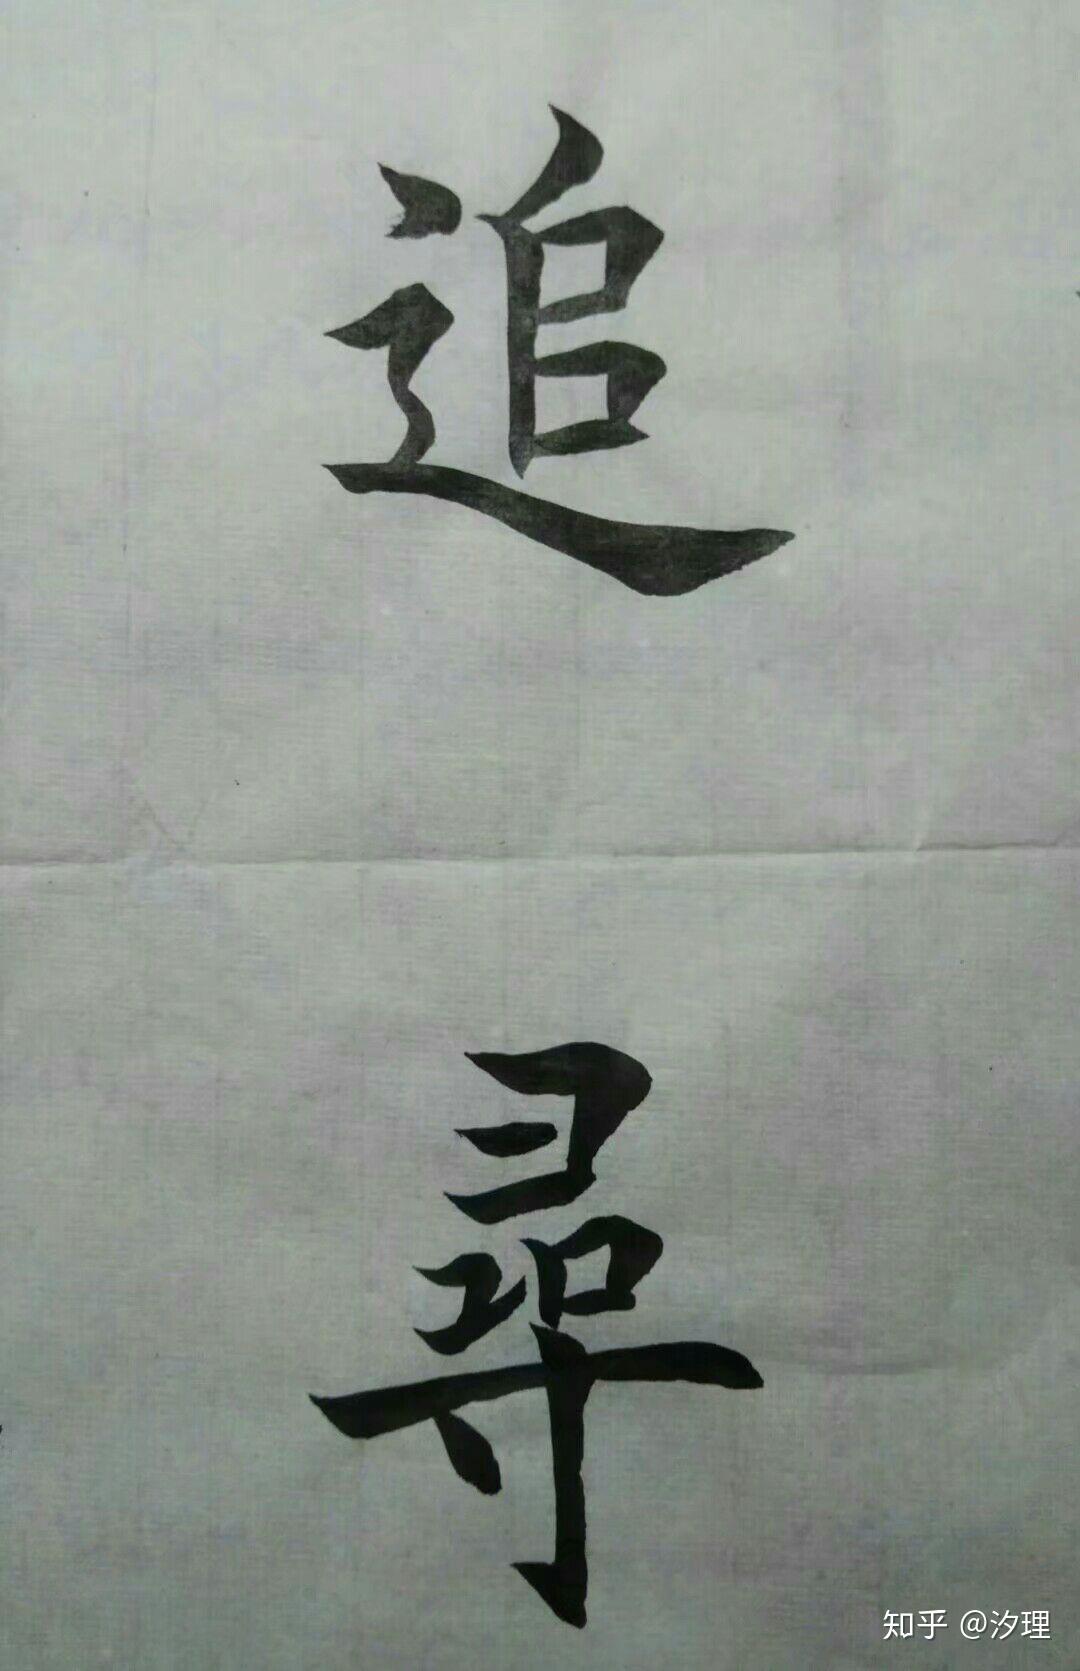 追
尋
知乎 @汐理